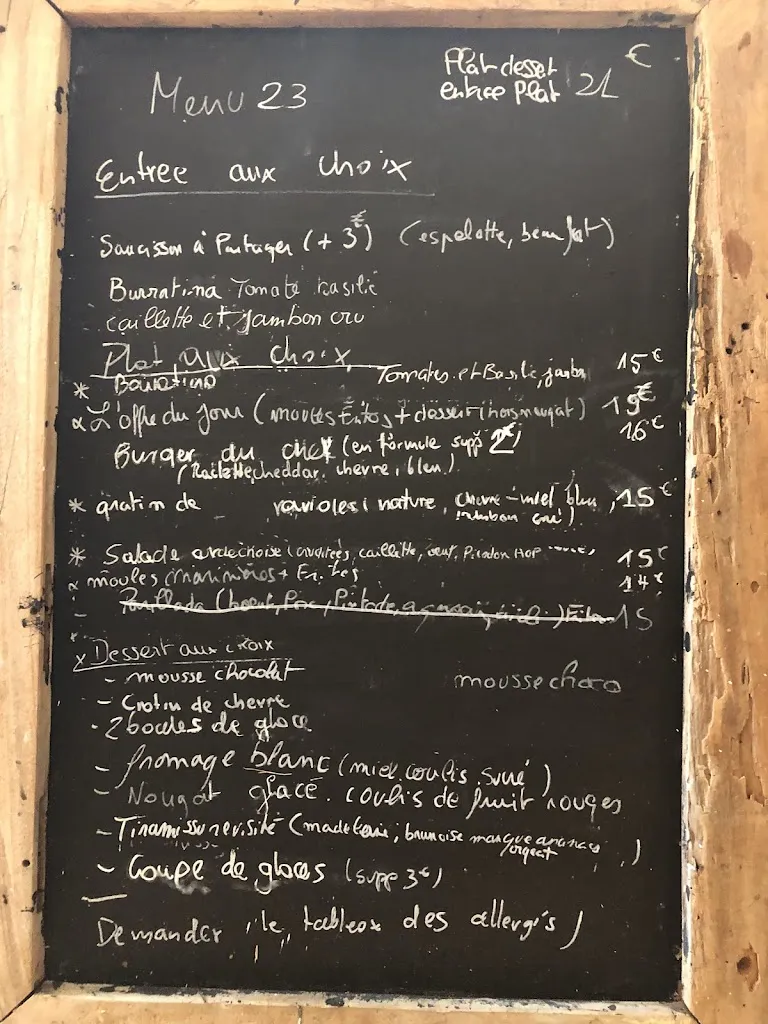 Menu 23
Plat desset
entree Plat 21 €
Entree aux choix
Saucisson à Partager (+ 3€) (espelette, beaufort)
Burratina Tomate basilic
caillette et jambon cru
Plat aux choix
* Burratina Tomates et Basilic, jambon 15€
L'offre du jour (moules frites + dessert (hors nougat) 19€
Burger du chef (en formule supp 2€) 16€
(Raclette, cheddar, chevre, bleu)
* gratin de ravioles (nature, chevre-miel, bleu, 15€
jambon cru)
* Salade ardechoise (crudités, caillette, oeuf, Picodon AOP 15€
moules marinières + Frites 14€
- 15
x Dessert aux choix
- mousse chocolat mousse choco
- Crotin de chevre
- 2 boules de glace
- fromage blanc (miel, coulis, sucré)
- Nougat glacé, coulis de fruit rouges
- Tiramissu revisité (madeleine, brunoise mangue ananas
orgeat )
- Coupe de glaces (supp 3€)
Demander le tableax des allergis /